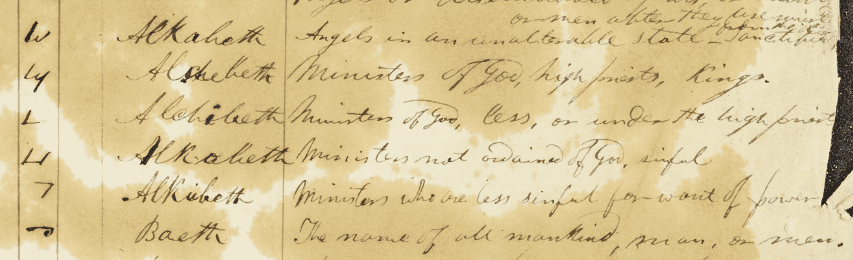 or men after they are
Alkabeth Angels in an unalterable state – Sanctified
Alchebeth Ministers of God, high priests, Kings.
Alchibeth Ministers of God, less, or under the high priest
Alkabeth Ministers not ordained of God, sinful
Alkibeth Ministers who are less sinful for want of power
Baeth The name of all mankind, man, or men.